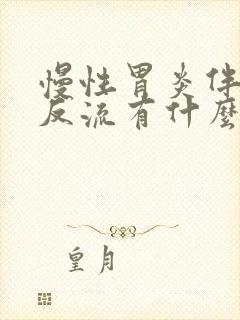 慢性胃炎伴
反流有什麼
皇月